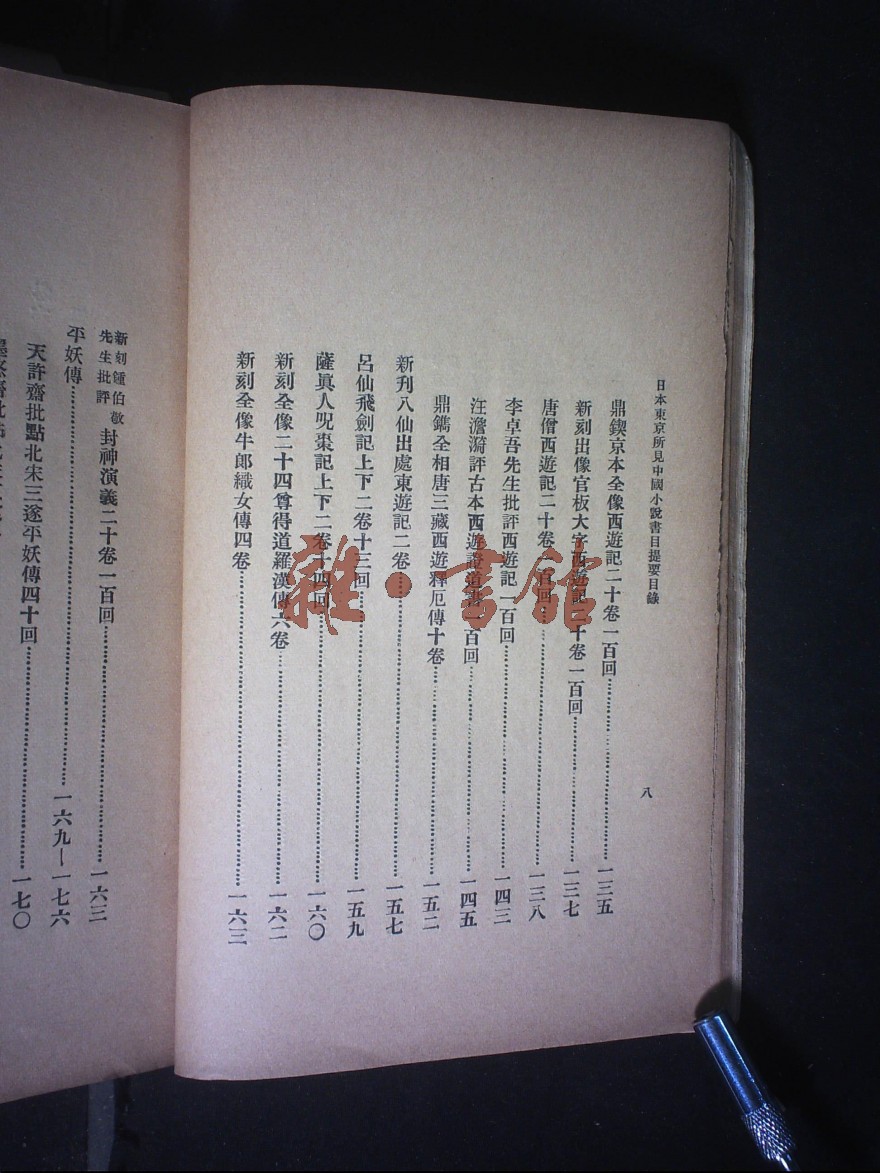 日本東京所見中國小說書目提要目錄
八
鼎鍥京本全像西遊記二十卷一百回……一三五
新刻出像官板大字西遊記二十卷一百回……一三七
唐僧西遊記二十卷一百回……一三八
李卓吾先生批評西遊記一百回……一四三
汪澹漪評古本西遊證道書一百回……一四五
鼎鐫全相唐三藏西遊釋厄傳十卷……一五二
新刋八仙出處東遊記二卷……一五七
呂仙飛劍記上下二卷十三回……一五九
薩眞人呪棗記上下二卷十四回……一六〇
新刻全像二十四尊得道羅漢傳六卷……一六二
新刻全像牛郎織女傳四卷……一六三
新刻鍾伯敬先生批評封神演義二十卷一百回……一六三
平妖傳……一六九—一七六
天許齋批點北宋三遂平妖傳四十回……一七〇
雜·書館